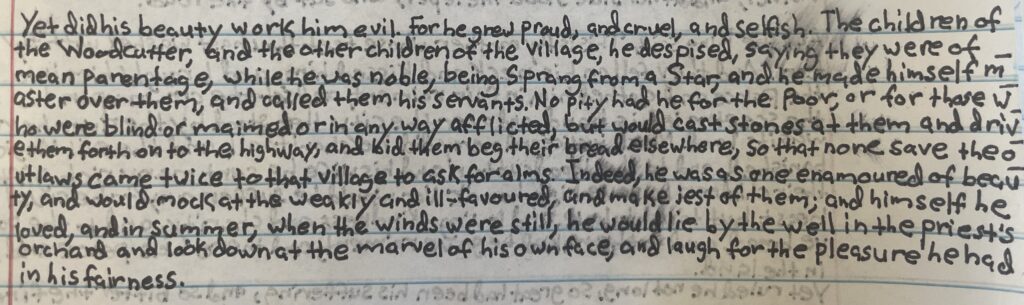 Yet did his beauty work him evil. For he grew proud, and cruel, and selfish. The children of
the Woodcutter, and the other children of the village, he despised, saying they were of
mean parentage, while he was noble, being sprang from a Star, and he made himself m-
aster over them, and called them his servants. No pity had he for the poor, or for those w-
ho were blind or maimed or in any way afflicted, but would cast stones at them and driv-
e them forth on to the highway, and bid them beg their bread elsewhere, so that none save the o-
utlaws came twice to that village to ask for alms. Indeed, he was as one enamoured of beau-
ty, and would mock at the weakly and ill-favoured, and make jest of them; and himself he
loved, and in summer, when the winds were still, he would lie by the well in the priest's
orchard and look down at the marvel of his own face, and laugh for the pleasure he had
in his fairness.